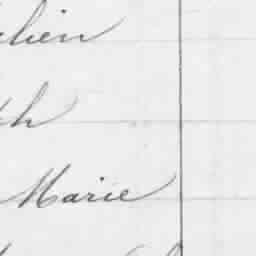 lien
th
Marie